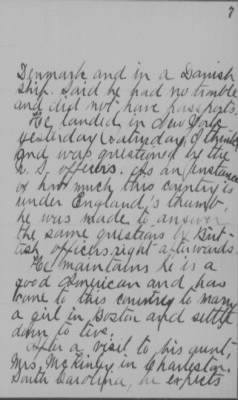 7
Denmark and in a Danish
ship. Said he had no trouble
and did not have passports.
He landed in New York
yesterday (Saturday, I think)
and was questioned by the
U.S. officers. As an instance
of how much this country is
under England's thumb,
he was made to answer
the same questions by Brit-
ish officers right afterwards.
He maintains he is a
good American and has
come to this country to marry
a girl in Boston and settle
down to live.
After a visit to his aunt,
Mrs. McKinley in Charleston,
South Carolina, he expects